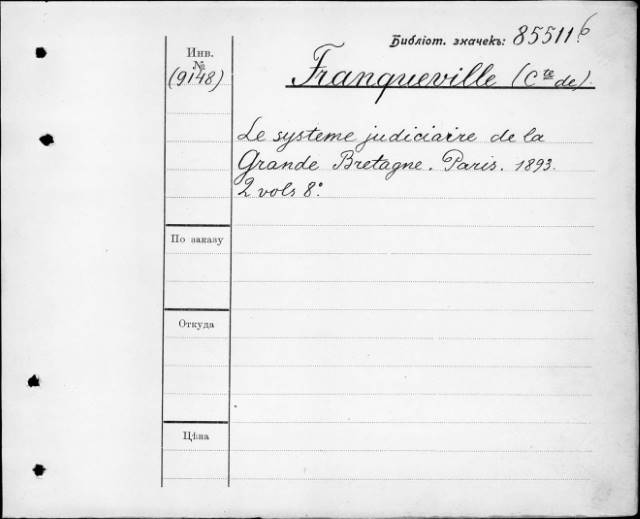 Библіот. значекъ: 85511б
Инв.
№
(9148)
Franqueville (Cte de).
Le système judiciaire de la
Grande Bretagne. Paris. 1893.
2 vols 8°.
По заказу
Откуда
Цѣна